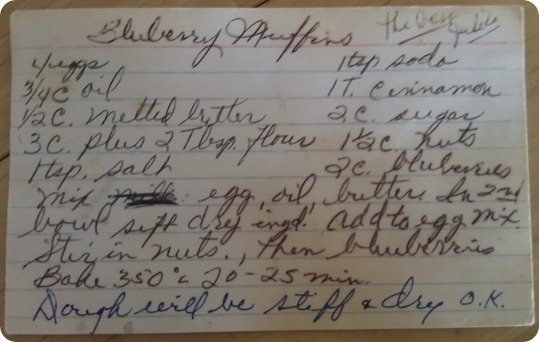 Bluberry Muffins the best
4 eggs 1 tsp soda
3/4 C oil 1 T. Cinnamon
1/2 C. Melted butter 2 C. sugar
3 C. plus 2 Tbsp. flour 1 1/2 C. nuts
1 tsp. salt 2 C. bluberries
Mix egg, oil, butter. In 2nd
bowl sift dry ingd. Add to egg mix.
Stir in nuts., then bluberries
Bake 350° 20-25 min.
Dough will be stiff & dry O.K.